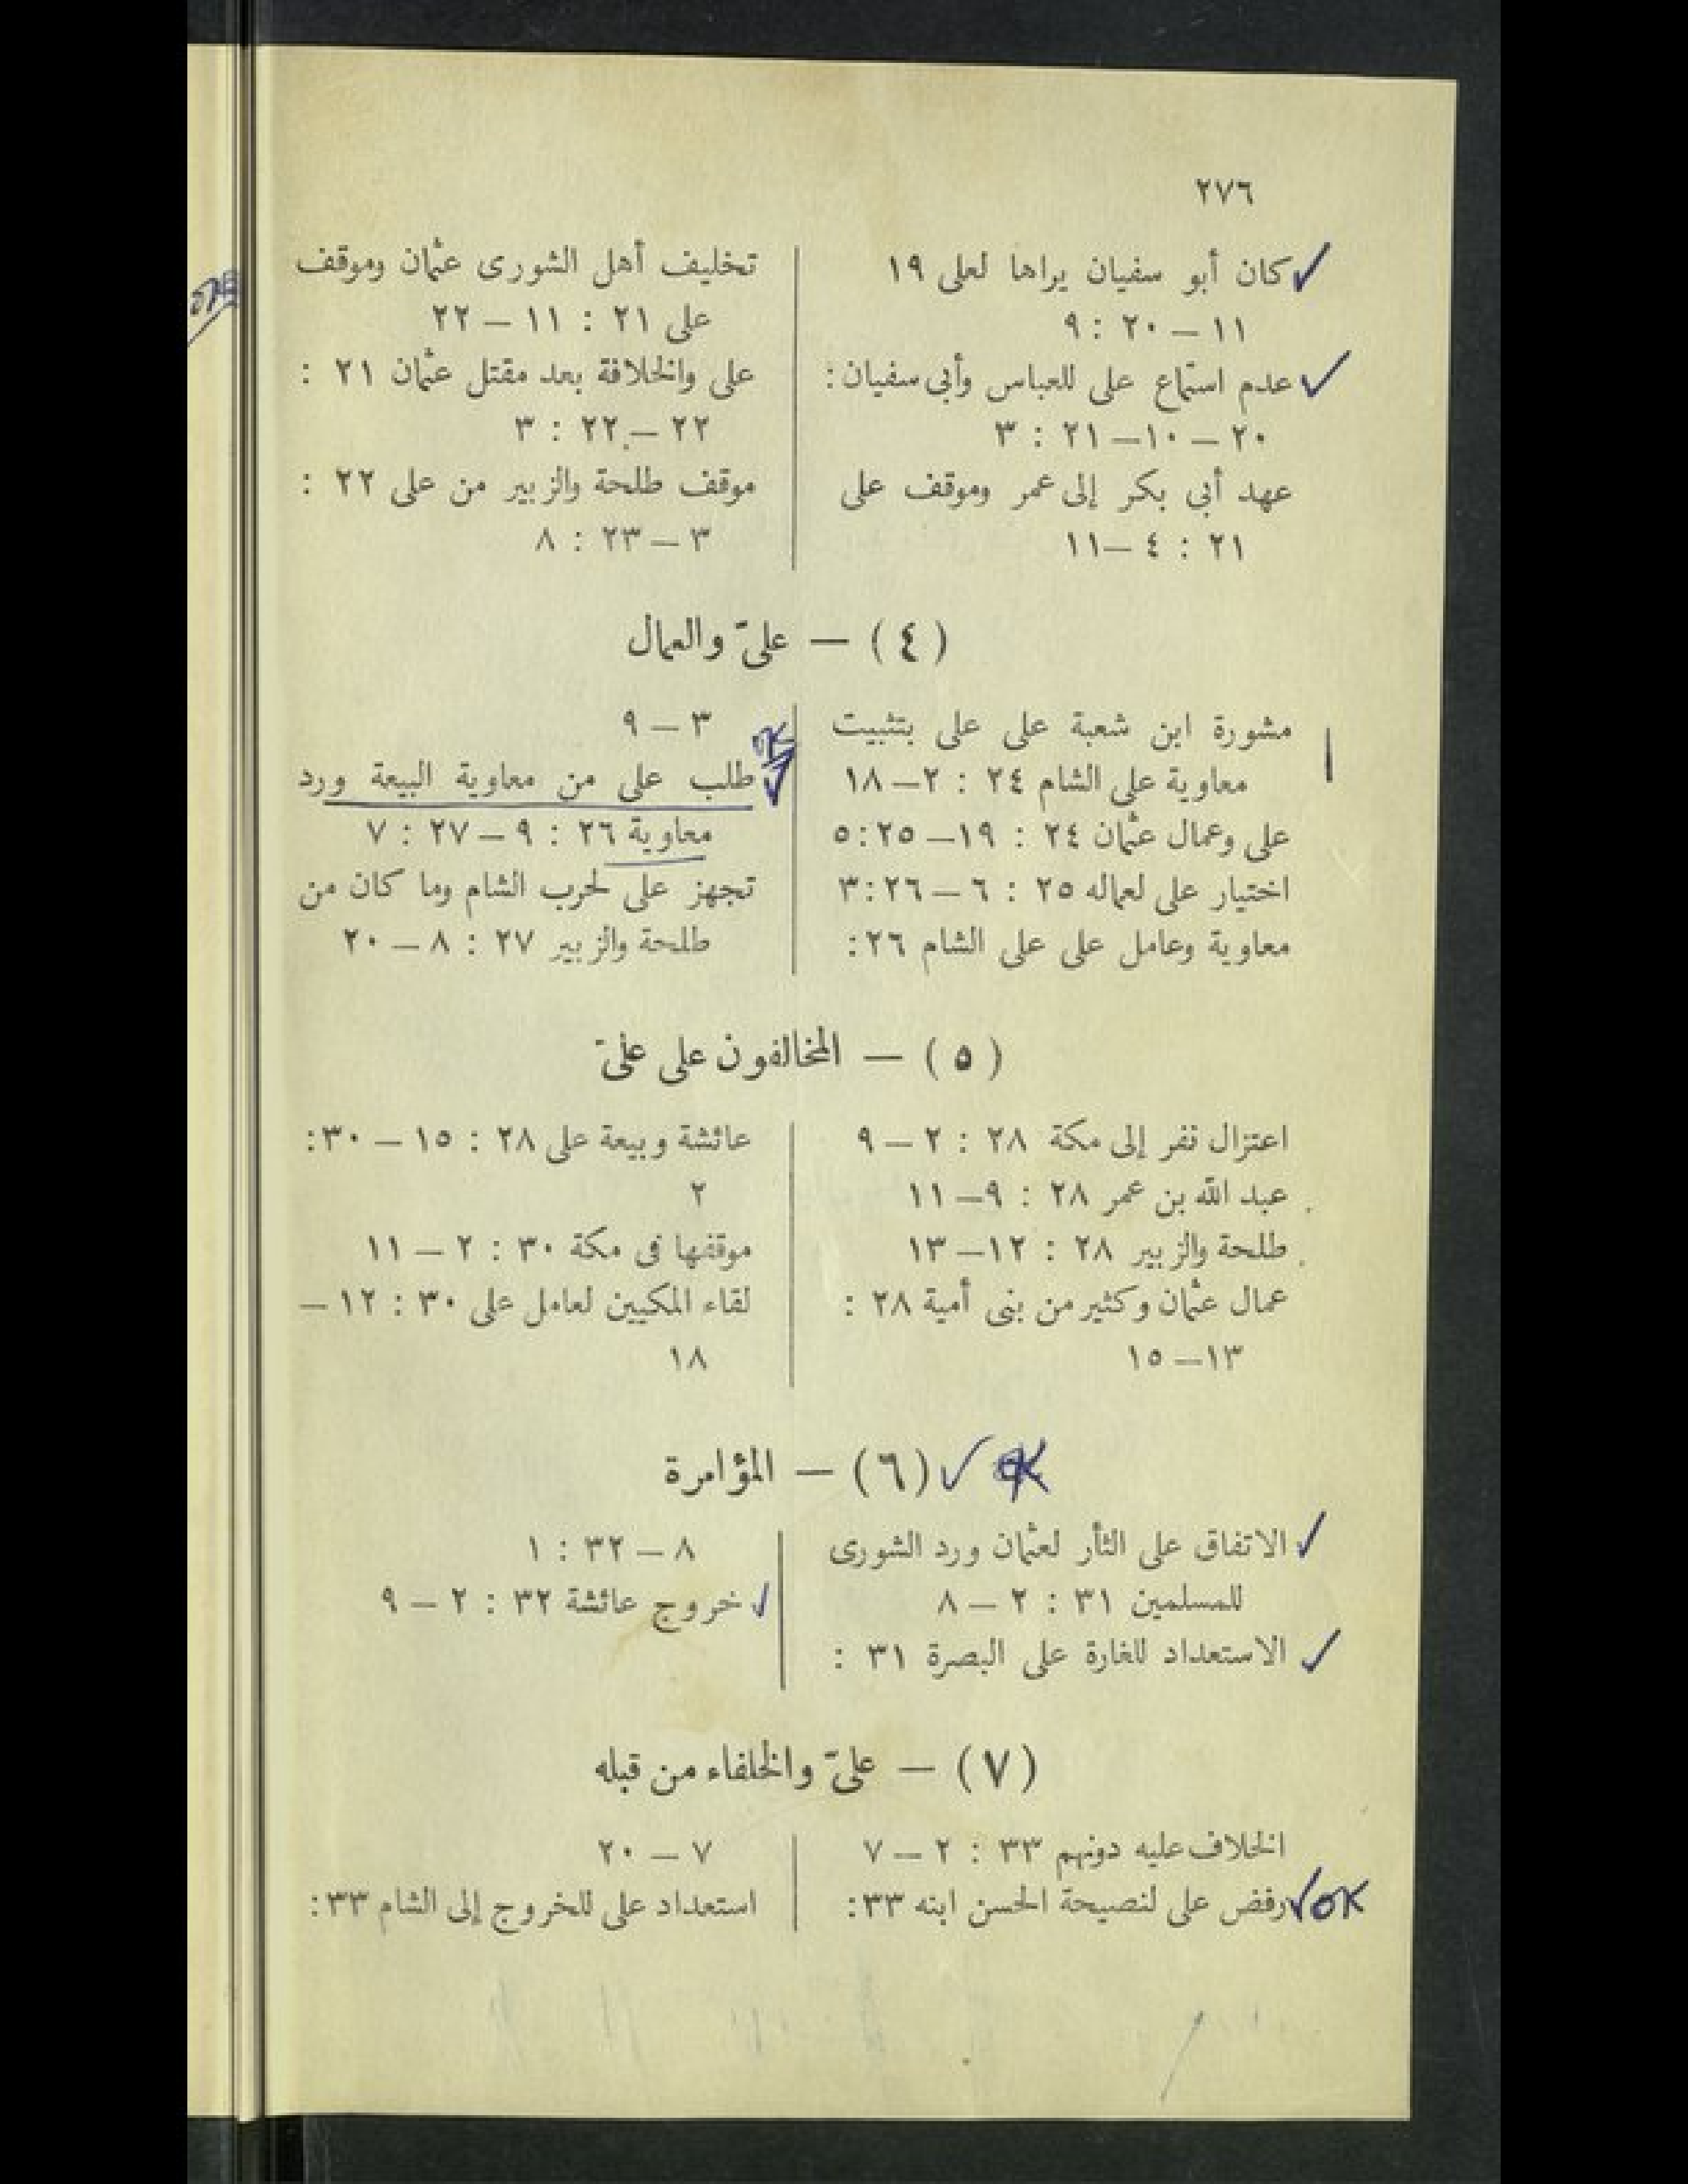 ٢٧٦
كان أبو سفيان يراها لعلى ١٩
١١ — ٢٠ : ٩
عدم استماع على للعباس وأبى سفيان :
٢٠ — ١٠ — ٢١ : ٣
عهد أبى بكر إلى عمر وموقف على
٢١ : ٤ — ١١
تخليف أهل الشورى عثمان وموقف
على ٢١ : ١١ — ٢٢
على والخلافة بعد مقتل عثمان ٢١ :
٢٢ — ٢٢ : ٣
موقف طلحة والزبير من على ٢٢ :
٣ — ٢٣ : ٨
(٤) — علىّ والعمال
مشورة ابن شعبة على على بتثبيت
معاوية على الشام ٢٤ : ٢ — ١٨
على وعمال عثمان ٢٤ : ١٩ — ٢٥ : ٥
اختيار على لعماله ٢٥ : ٦ — ٢٦ : ٣
معاوية وعامل على على الشام ٢٦ :
٣ — ٩
OK
طلب على من معاوية البيعة ورد
معاوية ٢٦ : ٩ — ٢٧ : ٧
تجهز على لحرب الشام وما كان من
طلحة والزبير ٢٧ : ٨ — ٢٠
(٥) — المخالفون على علىّ
اعتزال نفر إلى مكة ٢٨ : ٢ — ٩
عبد الله بن عمر ٢٨ : ٩ — ١١
طلحة والزبير ٢٨ : ١٢ — ١٣
عمال عثمان وكثير من بنى أمية ٢٨ :
١٣ — ١٥
عائشة وبيعة على ٢٨ : ١٥ — ٣٠ :
٢
موقفها فى مكة ٣٠ : ٢ — ١١
لقاء المكيين لعامل على ٣٠ : ١٢ —
١٨
OK (٦) — المؤامرة
الاتفاق على الثأر لعثمان ورد الشورى
للمسلمين ٣١ : ٢ — ٨
الاستعداد للغارة على البصرة ٣١ :
٨ — ٣٢ : ١
خروج عائشة ٣٢ : ٢ — ٩
(٧) — علىّ والخلفاء من قبله
الخلاف عليه دونهم ٣٣ : ٢ — ٧
OK رفض على لنصيحة الحسن ابنه ٣٣ :
٧ — ٢٠
استعداد على للخروج إلى الشام ٣٣ :